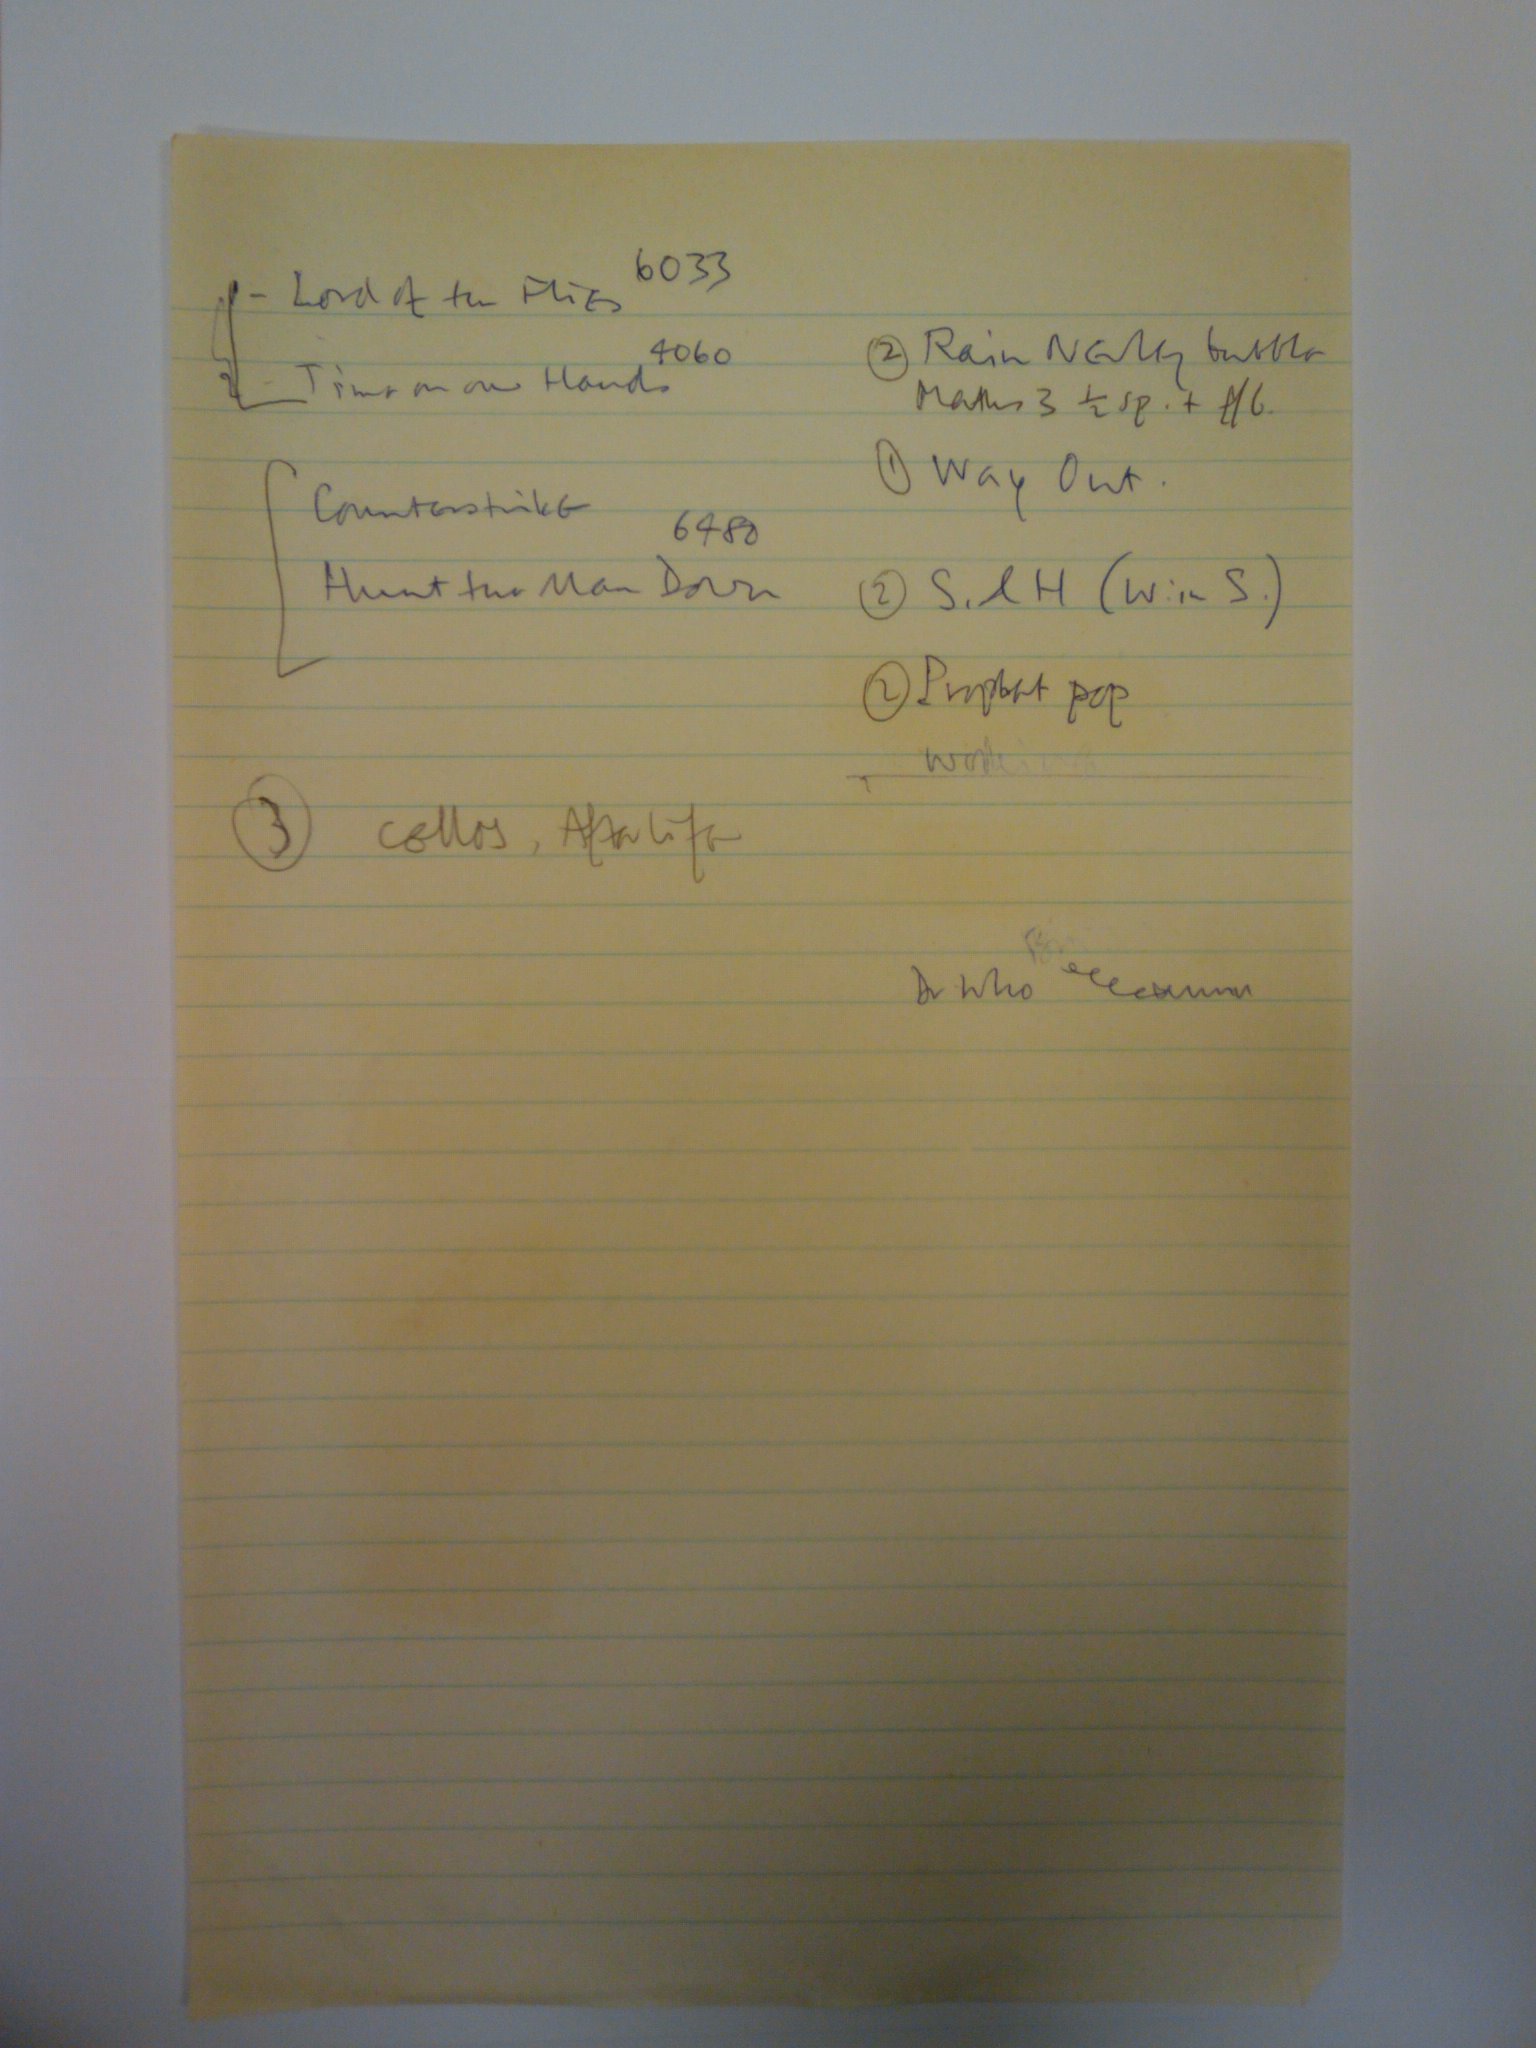 - Lord of the Flies 6033
- Time on our Hands 4060
Counterstrike
Hunt the Man Down 6480
③ Cellos, Afterlife
② Rain Nearly bubble
Maths 3 ½ sp. +
① Way Out.
② S. & H (W in S.)
② Prophet pop
Dr Who